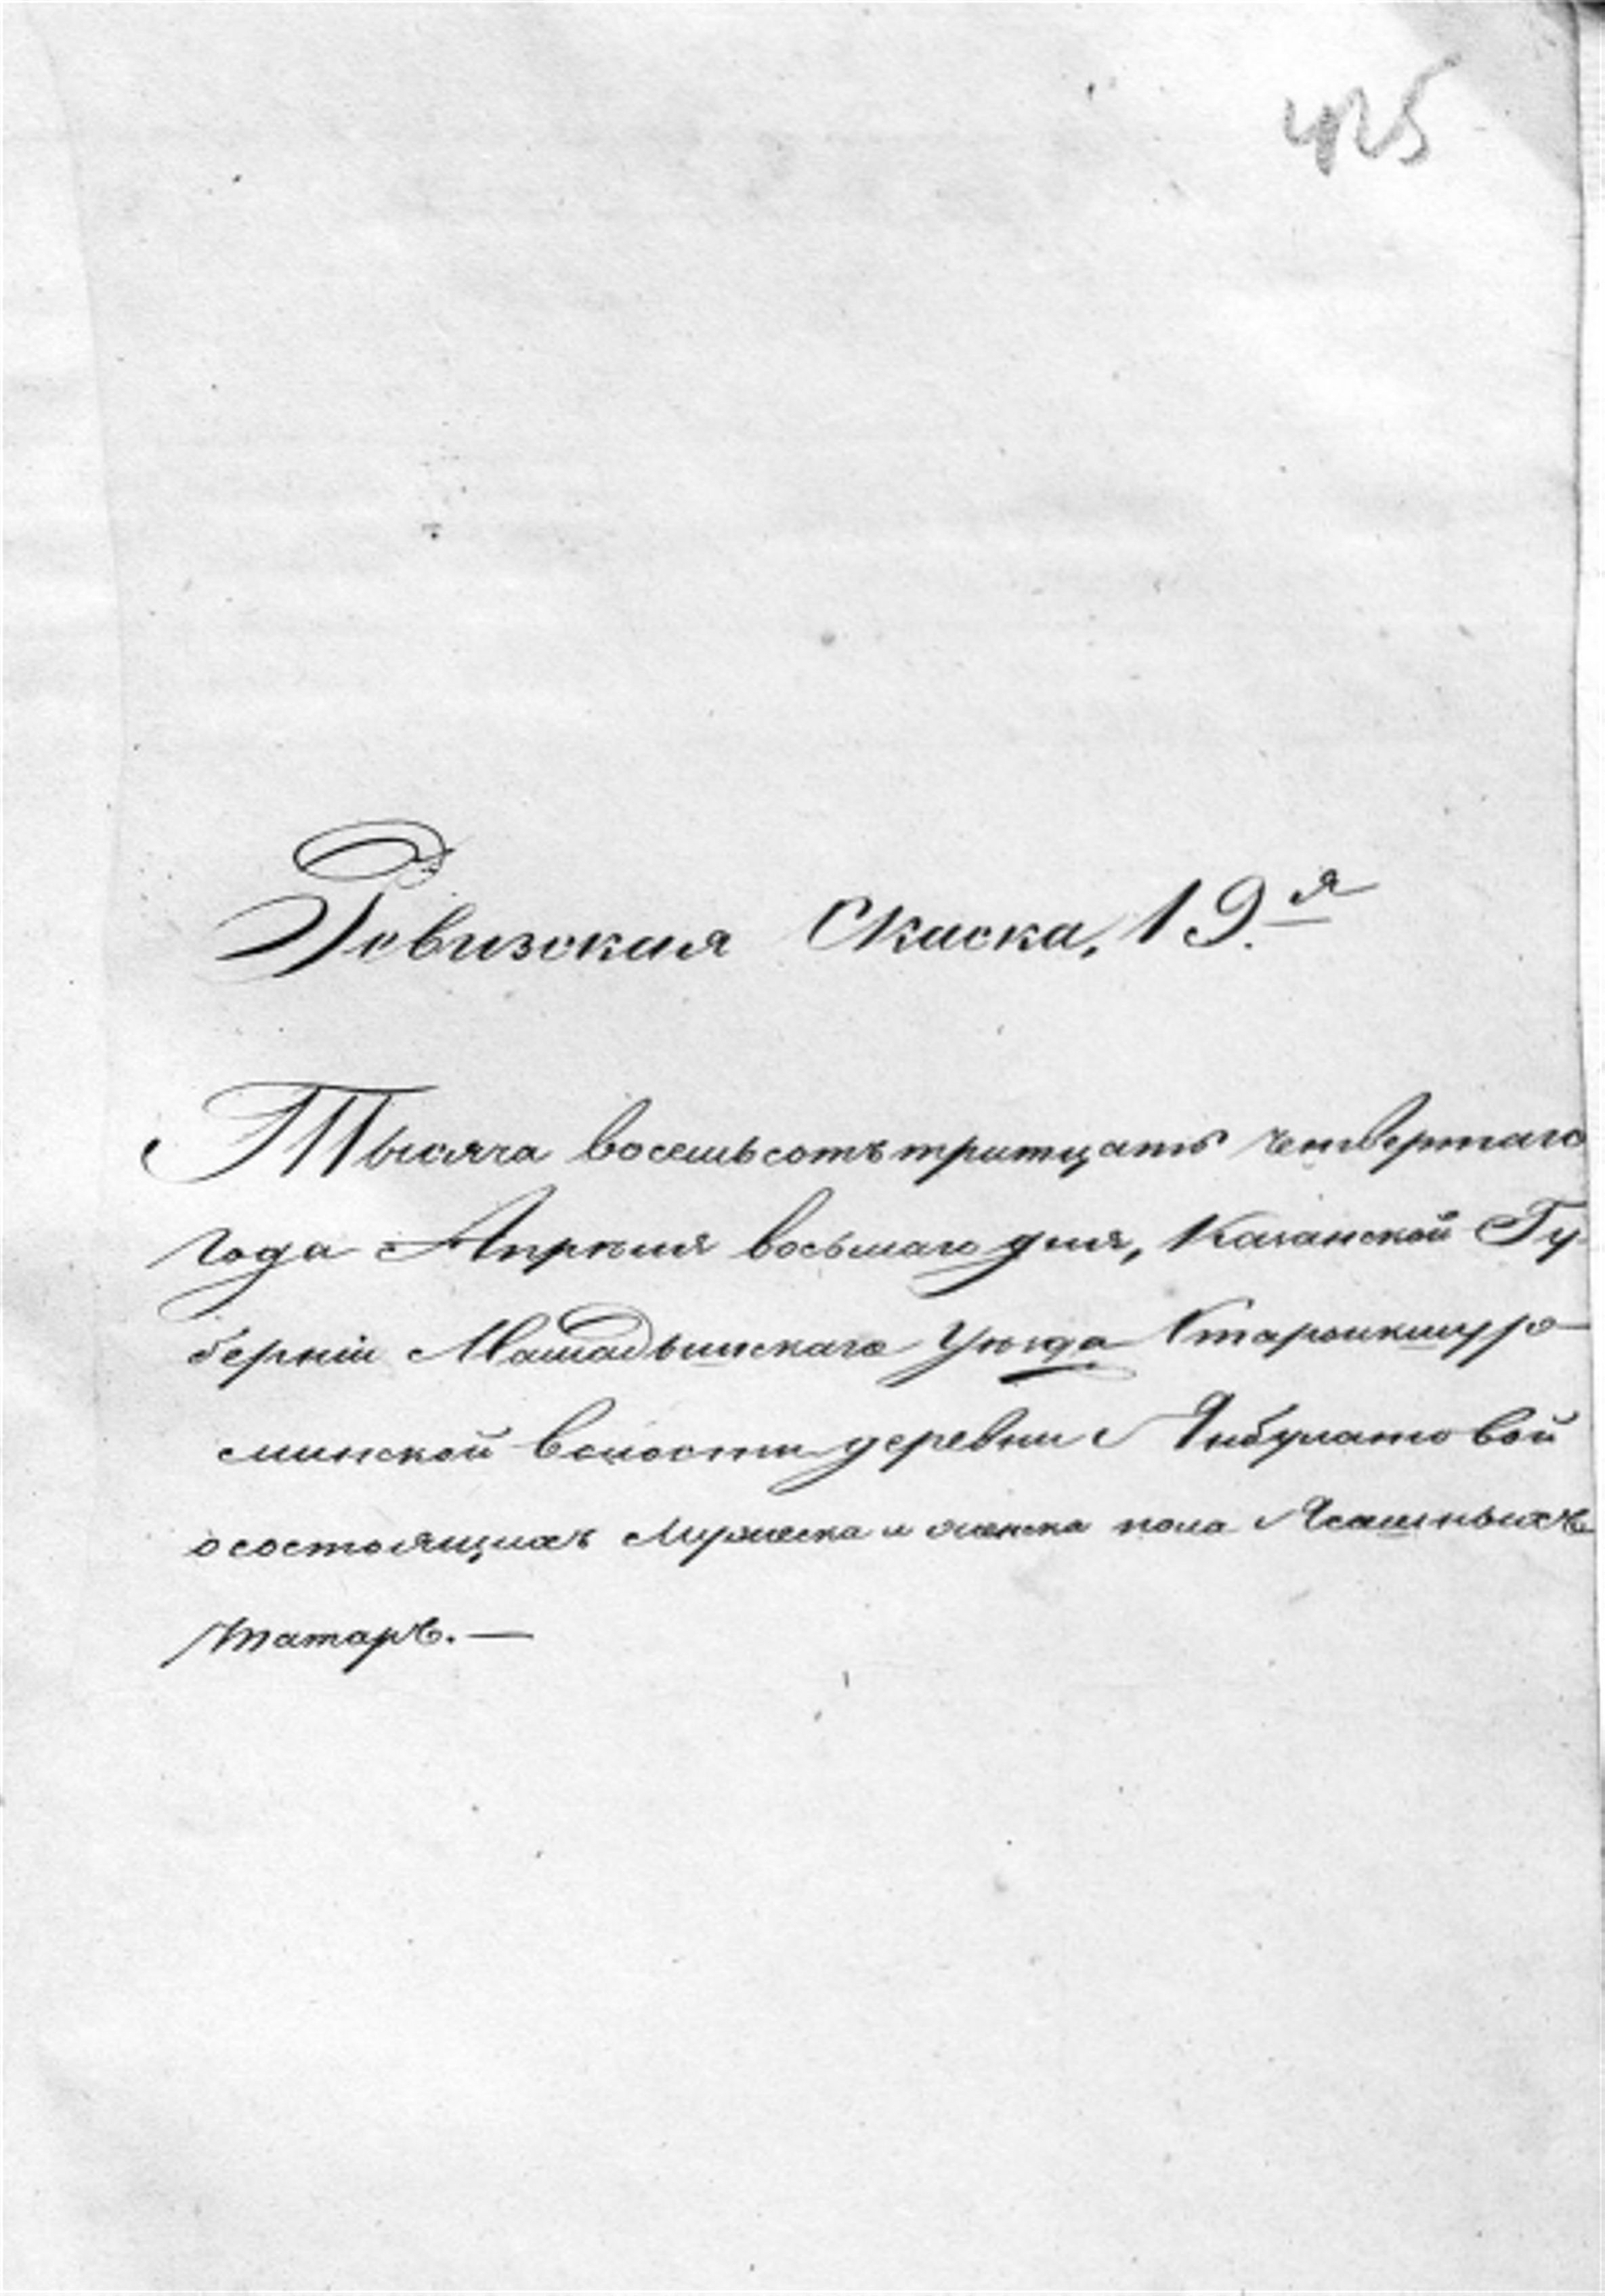 425
Ревизская Скаска, 19.я
Тысяча восемьсотъ тритцать четвертаго
года Апреля восьмаго дня, Казанской Гу-
берніи Мамадышскаго Уѣзда Староикшур
минской волости деревни Янбулатовой
о состоящихъ Мужеска и женска пола Ясашныхъ
татаръ. —